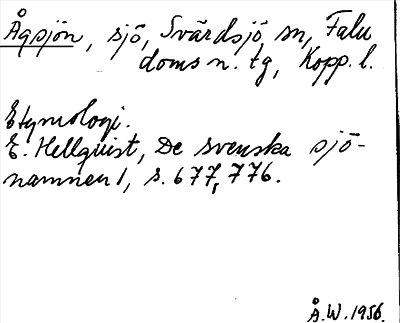 Ågsjön, sjö, Svärdsjö sn, Falu
doms n. tg, Kopp. l.
Etymologi.
E. Hellquist, De svenska sjö-
namnen 1, s. 677, 776.
Å.W. 1956.